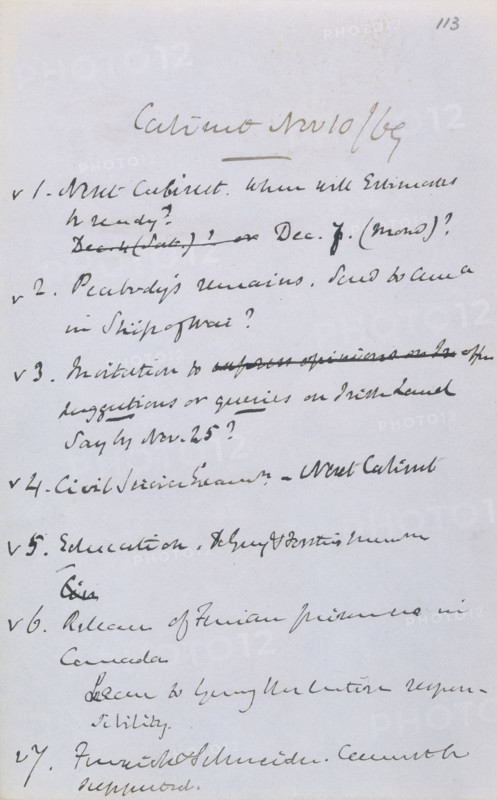 113
Cabinet Nov 10/69
v 1. Next Cabinet. When will Estimates
be ready?
Dec. 4 (Sat.)? or Dec. 7. (Mond)?
v 2. Peabody's remains. Send to America
in Ship of war?
v 3. Invitation to express opinions on Ir offer
suggestions or queries on Irish Land
Say by Nov. 25?
v 4. Civil Service Examns. - Next Cabinet
v 5. Education. De Grey & Forster's mem
v 6. Release of Fenian prisoners in
Canada
Leave to Young the entire respon-
sibility.
v 7. Schneider. Cannot be
supported.